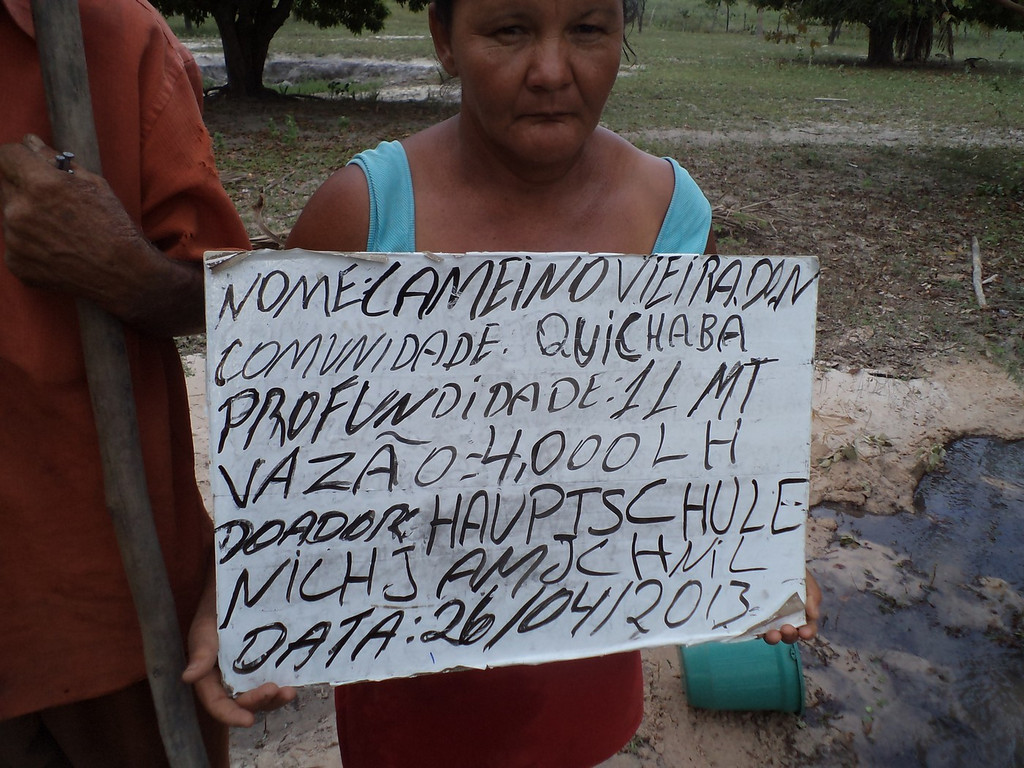 NOME: CAMEINO VIEIRA.DO.N
COMUNIDADE: QUICHABA
PROFUNDIDADE: 11 MT
VAZÃO = 4,000 LH
DOADOR: HAUPTSCHULE
NICHJ AMJCHNIL
DATA: 26/04/2013